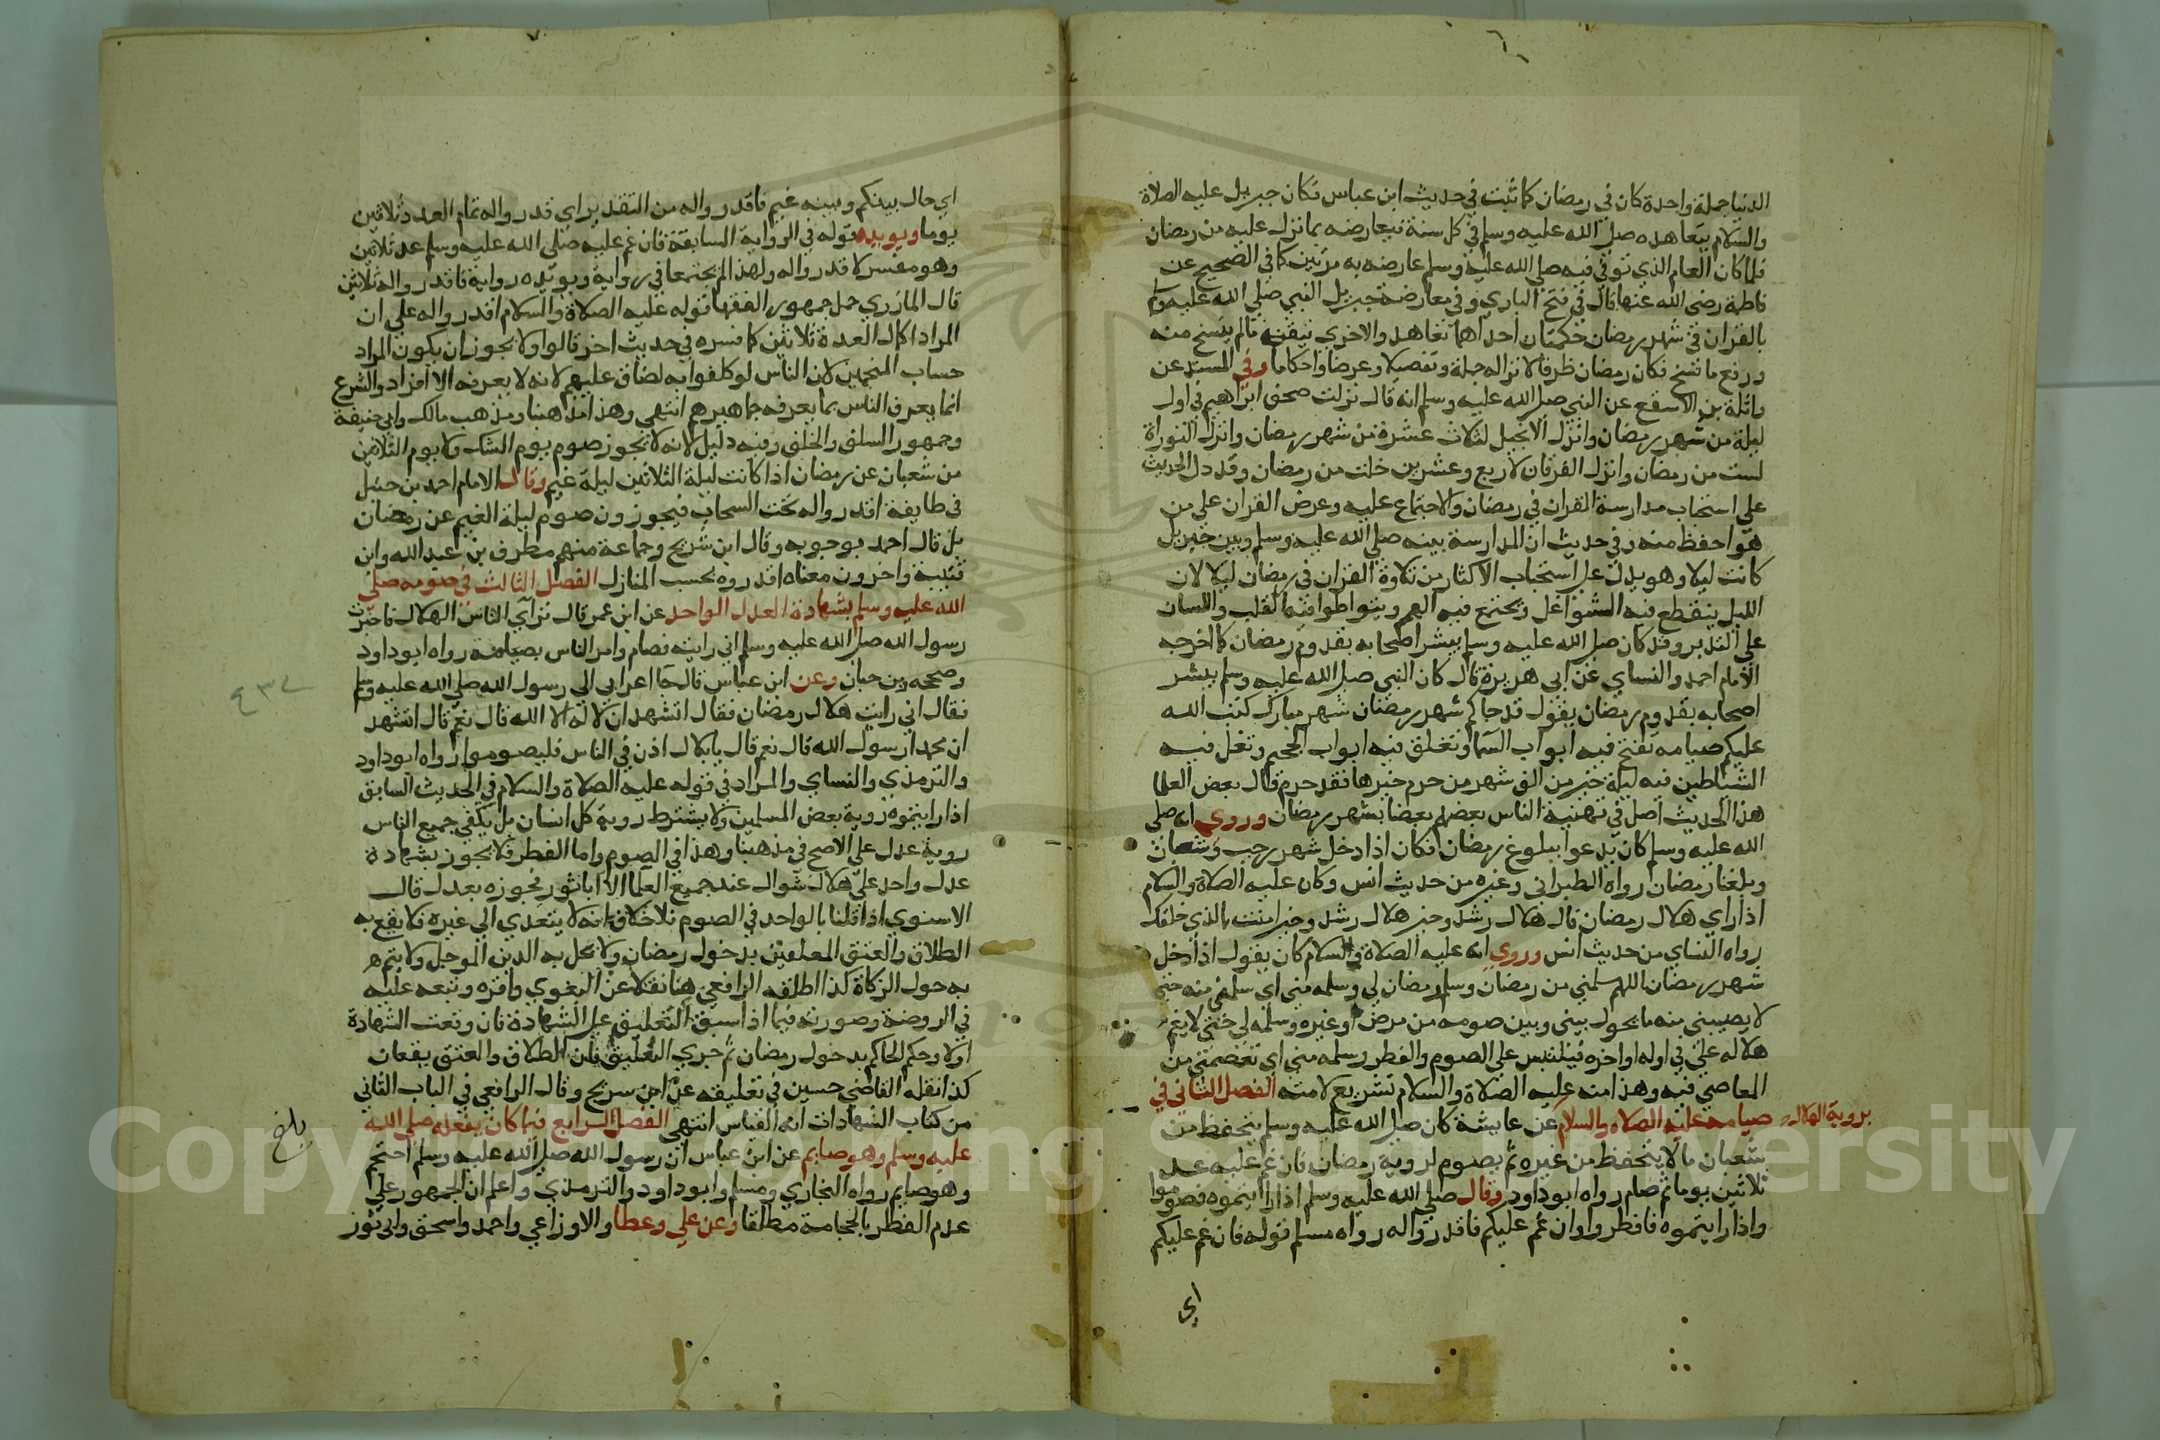 الدنيا جملة واحدة كان في رمضان كما ثبت في حديث ابن عباس فكان جبريل عليه الصلاة
والسلام يتعاهده صلى الله عليه وسلم في كل سنة فيعارضه بما نزل عليه من رمضان
فلما كان العام الذي توفي فيه صلى الله عليه وسلم عارضه به مرتين كما في الصحيح عن
فاطمة رضي الله عنها قال في فتح الباري وفي معارضة جبريل النبي صلى الله عليه وسلم
بالقران في شهر رمضان حكمتان احداهما تعاهده والاخري تبقية مالم ينسخ منه
ورفع ما نسخ فكان رمضان ظرفا لانزاله جملة وتفصيلا وعرضا واحكاما وفي المسند عن
واثلة بن الاسقع عن النبي صلى الله عليه وسلم انه قال نزلت صحف ابراهيم في اول
ليلة من شهر رمضان وانزل الانجيل لثلاث عشرة من شهر رمضان وانزل التوراة
لست من رمضان وانزل الفرقان لاربع وعشرين خلت من رمضان وقد دل الحديث
على استحباب مدارسة القران في رمضان والاجتماع عليه وعرض القران على من
هو احفظ منه وفي حديث ان المدارسة بينه صلى الله عليه وسلم وبين جبريل
كانت ليلا وهو يدل على استحباب الاكثار من تلاوة القران في رمضان ليلا لان
الليل ينقطع فيه الشواغل وتجتمع فيه الهمم ويتواطوا فيه القلب واللسان
على التدبر وقد كان صلى الله عليه وسلم يبشر اصحابه بقدوم رمضان كما اخرجه
الامام احمد والنساي عن ابي هريرة قال كان النبي صلى الله عليه وسلم يبشر
اصحابه بقدوم رمضان يقول قد جاكم شهر رمضان شهر مبارك كتب الله
عليكم صيامه تفتح فيه ابواب السما وتغلق فيه ابواب الجحيم وتغل فيه
الشياطين فيه ليلة خير من الف شهر من حرم خيرها فقد حرم قال بعض العلما
هذا الحديث اصل في تهنية الناس بعضهم بعضا بشهر رمضان وروي انه صلى
الله عليه وسلم كان يدعوا ببلوغ رمضان فكان اذا دخل شهر رجب وشعبان
وبلغنا رمضان رواه الطبراني وغيره من حديث انس وكان عليه الصلاة والسلام
اذا راي هلال رمضان قال هلال رشد وخير هلال رشد وخير امنت بالذي خلقك
رواه النساي من حديث انس وروي انه عليه الصلاة والسلام كان يقول اذا دخل
شهر رمضان اللهم سلمني من رمضان وسلم رمضان لي وسلمه مني اي سلمني منه حتى
لا يصيبني منه ما يحول بيني وبين صومه من مرض او غيره وسلمه لي حتى لا يغم
هلاله علي في اوله او اخره فيلتبس علي الصوم والفطر وسلمه مني اي تعصمني من
المعاصي فيه وهذا منه عليه الصلاة والسلام تشريع لامته الفصل الثاني في
صيامه عليه الصلاة والسلام بروية الهلال عن عايشة كان صلى الله عليه وسلم يتحفظ من
شعبان مالا يتحفظ من غيره ثم يصوم لروية رمضان فان غم عليه عد
ثلاثين يوما ثم صام رواه ابو داود وقال صلى الله عليه وسلم اذا رايتموه فصوموا
واذا رايتموه فافطروا وان غم عليكم فاقدروا له رواه مسلم قوله فان غم عليكم
اي
اي حال بينكم وبينه غيم فاقدروا له من التقدير اي قدروا له تمام العدد ثلاثين
يوما ويويده قوله في الرواية السابقة فان غم عليه صلى الله عليه وسلم عد ثلاثين
وهو مفسر لاقدروا له ولهذا لم يجتمعا في رواية ويويده رواية فاقدروا له ثلاثين
قال المازري حمل جمهور الفقها قوله عليه الصلاة والسلام اقدروا له على ان
المراد اكمال العدة ثلاثين كما فسره في حديث اخر قالوا ولا يجوز ان يكون المراد
حساب المنجمين لان الناس لو كلفوا به لضاق عليهم لانه لا يعرفه الا افراد والشرع
انما يعرف الناس بما يعرفه جماهيرهم انتهى وهذا مذهبنا ومذهب مالك وابي حنيفة
وجمهور السلف والخلف وفيه دليل لانه لا يجوز صوم يوم الشك ولا يوم الثلاثين
من شعبان عن رمضان اذا كانت ليلة الثلاثين ليلة غيم وقال الامام احمد بن حنبل
في طايفة اقدروا له تحت السحاب فيجوزون صوم ليلة الغيم عن رمضان
بل قال احمد بوجوبه وقال ابن شريح وجماعة منهم مطرف بن عبد الله وابن
قتيبة واخرون معناه اقدروه بحسب المنازل الفصل الثالث في صومه صلى
الله عليه وسلم بشهادة العدل الواحد عن ابن عمر قال تراي الناس الهلال فاخبرت
رسول الله صلى الله عليه وسلم اني رايته فصام وامر الناس بصيامه رواه ابو داود
وصححه بن حبان وعن ابن عباس قال جا اعرابي الي رسول الله صلى الله عليه وسلم
فقال اني رايت هلال رمضان فقال اتشهد ان لا اله الا الله قال نعم قال اتشهد
ان محمدا رسول الله قال نعم قال يابلال اذن في الناس فليصوموا رواه ابو داود
والترمذي والنساي والمراد في قوله عليه الصلاة والسلام في الحديث السابق
اذا رايتموه روية بعض المسلمين ولا يشترط روية كل انسان بل يكفي جميع الناس
روية عدل على الاصح في مذهبنا وهذا في الصوم واما الفطر فلا يجوز بشهادة
عدل واحد على هلال شوال عند جميع العلما الا ابا ثور فجوزه بعدل قال
الاسنوي اذا قلنا بالواحد في الصوم فلا خلاف انه لا يتعدي الي غيره فلا يقع به
الطلاق والعتق المعلقين بدخول رمضان ولا يحل به الدين الموجل ولا يتم
به حول الزكاة كذا اطلقه الرافعي هنا نقلا عن البغوي واقره وتبعه عليه
في الروضة وصورته فيما اذا سبق التعليق على الشهادة فان وقعت الشهادة
اولا وحكم الحاكم بدخول رمضان ثم جري التعليق فان الطلاق والعتق يقعان
كذا نقله القاضي حسين في تعليقه عن ابن سريج وقال الرافعي في الباب الثاني
من كتاب الشهادات انه القياس انتهى الفصل الرابع فيما كان يفعله صلى الله
عليه وسلم وهو صايم عن ابن عباس ان رسول الله صلى الله عليه وسلم احتجم
وهو صايم رواه البخاري ومسلم وابو داود والترمذي واعلم ان الجمهور على
عدم الفطر بالحجامة مطلقا وعن علي وعطا والاوزاعي واحمد واسحق وابي ثور
بلغ
Copyright © King Saud University